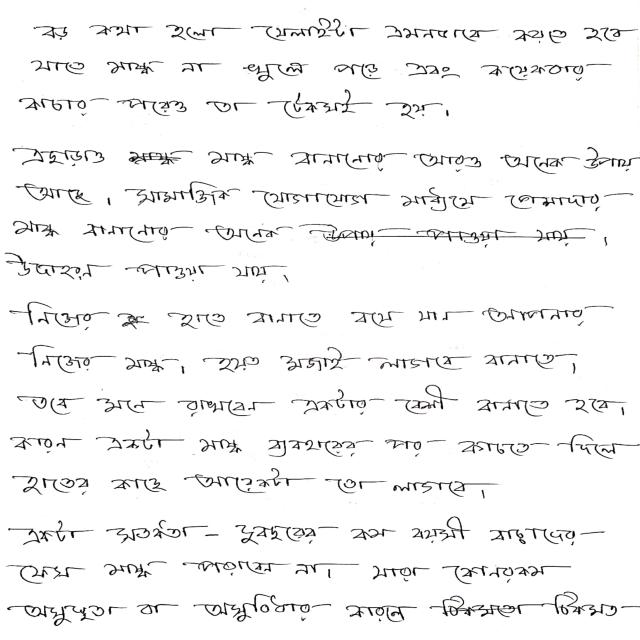 বড় কথা হলো সেলাইটা এমনভাবে করতে হবে
যাতে মাস্ক না খুলে পড়ে এবং কয়েকবার
কাচার পরেও তা টেকসই হয়।
এছাড়াও মাস্ক বানানোর আরও অনেক উপায়
আছে। সামাজিক যোগাযোগ মাধ্যমে পেশাদার
মাস্ক বানানোর অনেক উপায় পাওয়া যায়।
উদাহরন পাওয়া যায়।
নিজের হাতে বানাতে বসে যান আপনার
নিজের মাস্ক। হয়ত মজাই লাগবে বানাতে।
তবে মনে রাখবেন একটার বেশী বানাতে হবে।
কারন একটা মাস্ক ব্যবহারের পর কাচতে দিলে
হাতের কাছে আরেকটা তো লাগবে।
একটা সতর্কতা - দুবছরের কম বয়সী বাচ্চাদের
যেন মাস্ক পরাবেন না। যারা কোনরকম
অসুস্থতা বা অসুবিধার কারনে ঠিকমতো ঠিকমত